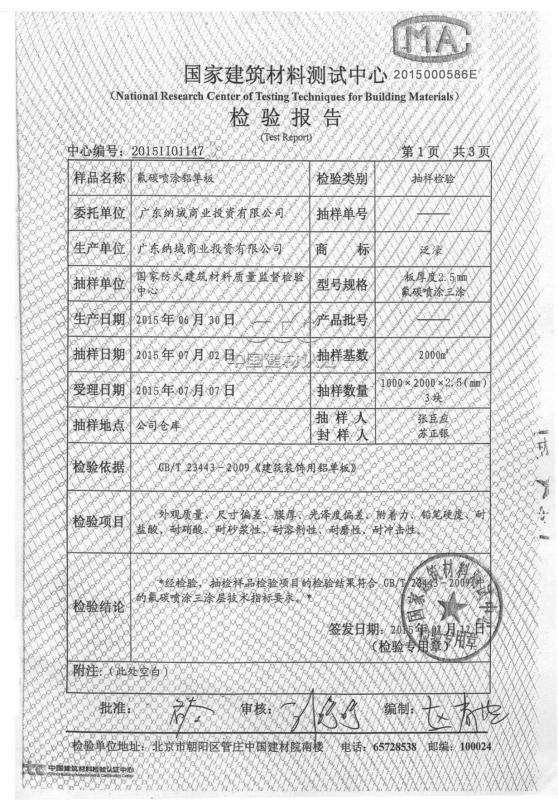 MA
国家建筑材料测试中心 2015000586E
(National Research Center of Testing Techniques for Building Materials)
检验报告
(Test Report)
中心编号: 2015II01147 第1页 共3页
样品名称 氟碳喷涂铝单板 检验类别 抽样检验
委托单位 广东纳城商业投资有限公司 抽样单号 ——
生产单位 广东纳城商业投资有限公司 商标 泛濠
抽样单位 国家防火建筑材料质量监督检验中心 型号规格 板厚度2.5mm 氟碳喷涂三涂
生产日期 2015年06月30日 产品批号 ——
抽样日期 2015年07月02日 抽样基数 2000㎡
受理日期 2015年07月07日 抽样数量 1000×2000×2.5(mm) 3块
抽样地点 公司仓库 抽样人 封样人 苏正银
检验依据 GB/T 23443-2009《建筑装饰用铝单板》
检验项目 外观质量、尺寸偏差、膜厚、光泽度偏差、附着力、铅笔硬度、耐
盐酸、耐硝酸、耐砂浆性、耐溶剂性、耐磨性、耐冲击性。
检验结论 *经检验，抽检样品检验项目的检验结果符合 GB/T 23443-2009中
的氟碳喷涂三涂层技术指标要求。*
签发日期: 2015年08月12日
(检验专用章)
附注:(此处空白)
批准: 审核: 编制:
检验单位地址: 北京市朝阳区管庄中国建材院南楼 电话: 65728538 邮编: 100024
ctc 中国建筑材料检验认证中心